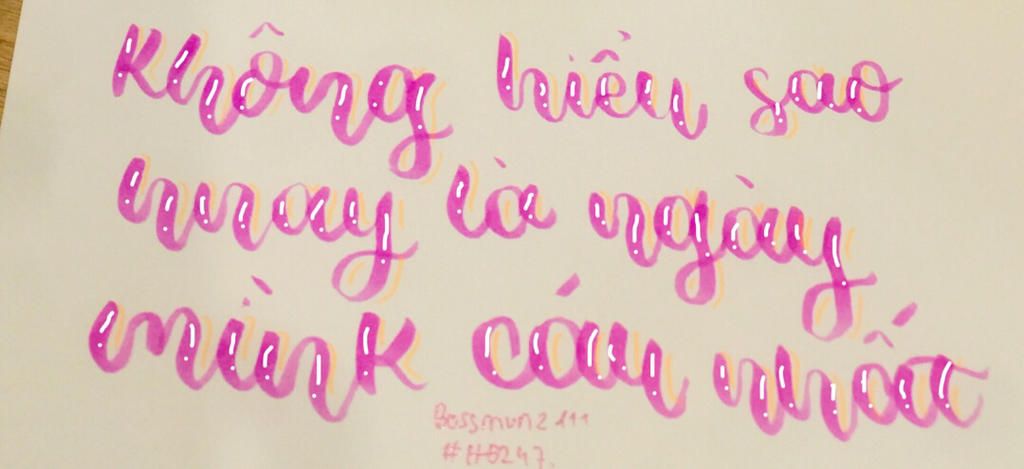 Không hiểu sao
hnay là ngày
mình cáu nhất
#HB247.